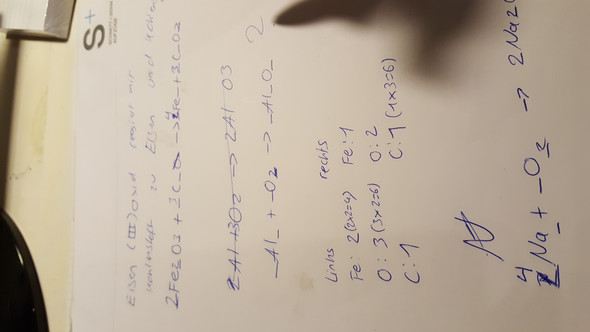 S+
Eisen (III) oxid reagiert mit
Kohlenstoff zu Eisen und Kohlen
2Fe2O3 + 3C_ → 4Fe_ + 3C_O2
2Al+3O2 → 2Al O3
_Al_ + _O2 → _Al_O_
2
Links rechts
Fe: 2 (2x2=4) Fe: 1
O: 3 (3x2=6) O: 2
C: 1 C: 1 (1x3=6)
4Na_ + _O2 → 2Na2O